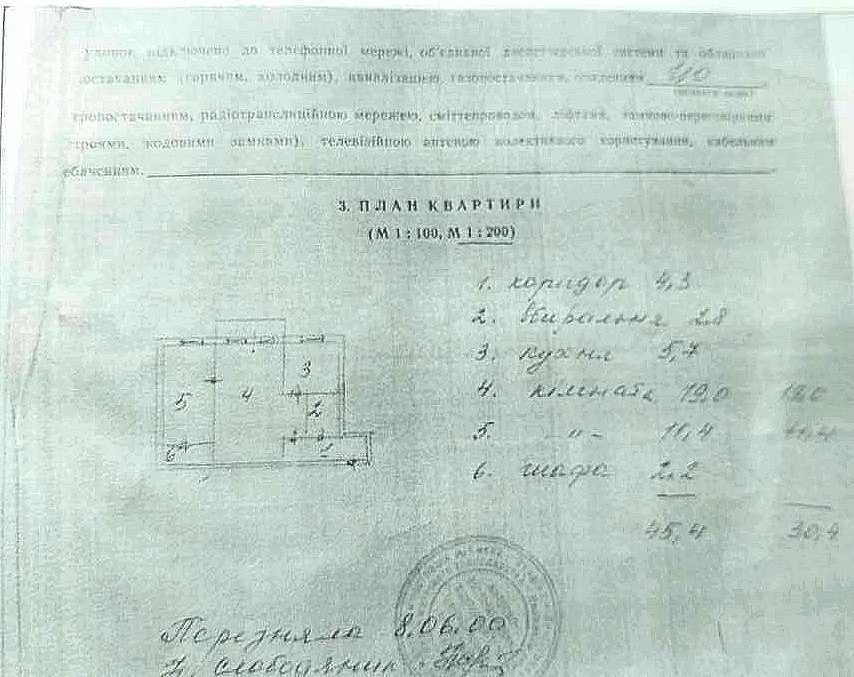 підключено до телефонної мережі, об'єднаної диспетчерської системи та обладнано
постачанням (гарячим, холодним), каналізацією, газопостачанням, опаленням
тропостачанням, радіотрансляційною мережею, сміттєпроводом, ліфтами,
строями, кодовими замками), телевізійною антеною колективного користування, кабельним
ебаченням.
3. ПЛАН КВАРТИРИ
(М 1 : 100, М 1 : 200)
1. коридор 4,3
2. Вбиральня 2.8
3. кухня 5,7
4. кімната 19,0 19,0
5. -"- 11,4 11,4
6. шафа 2.2
45,4 30,4
3
5
4
2
6
1
8.06.00